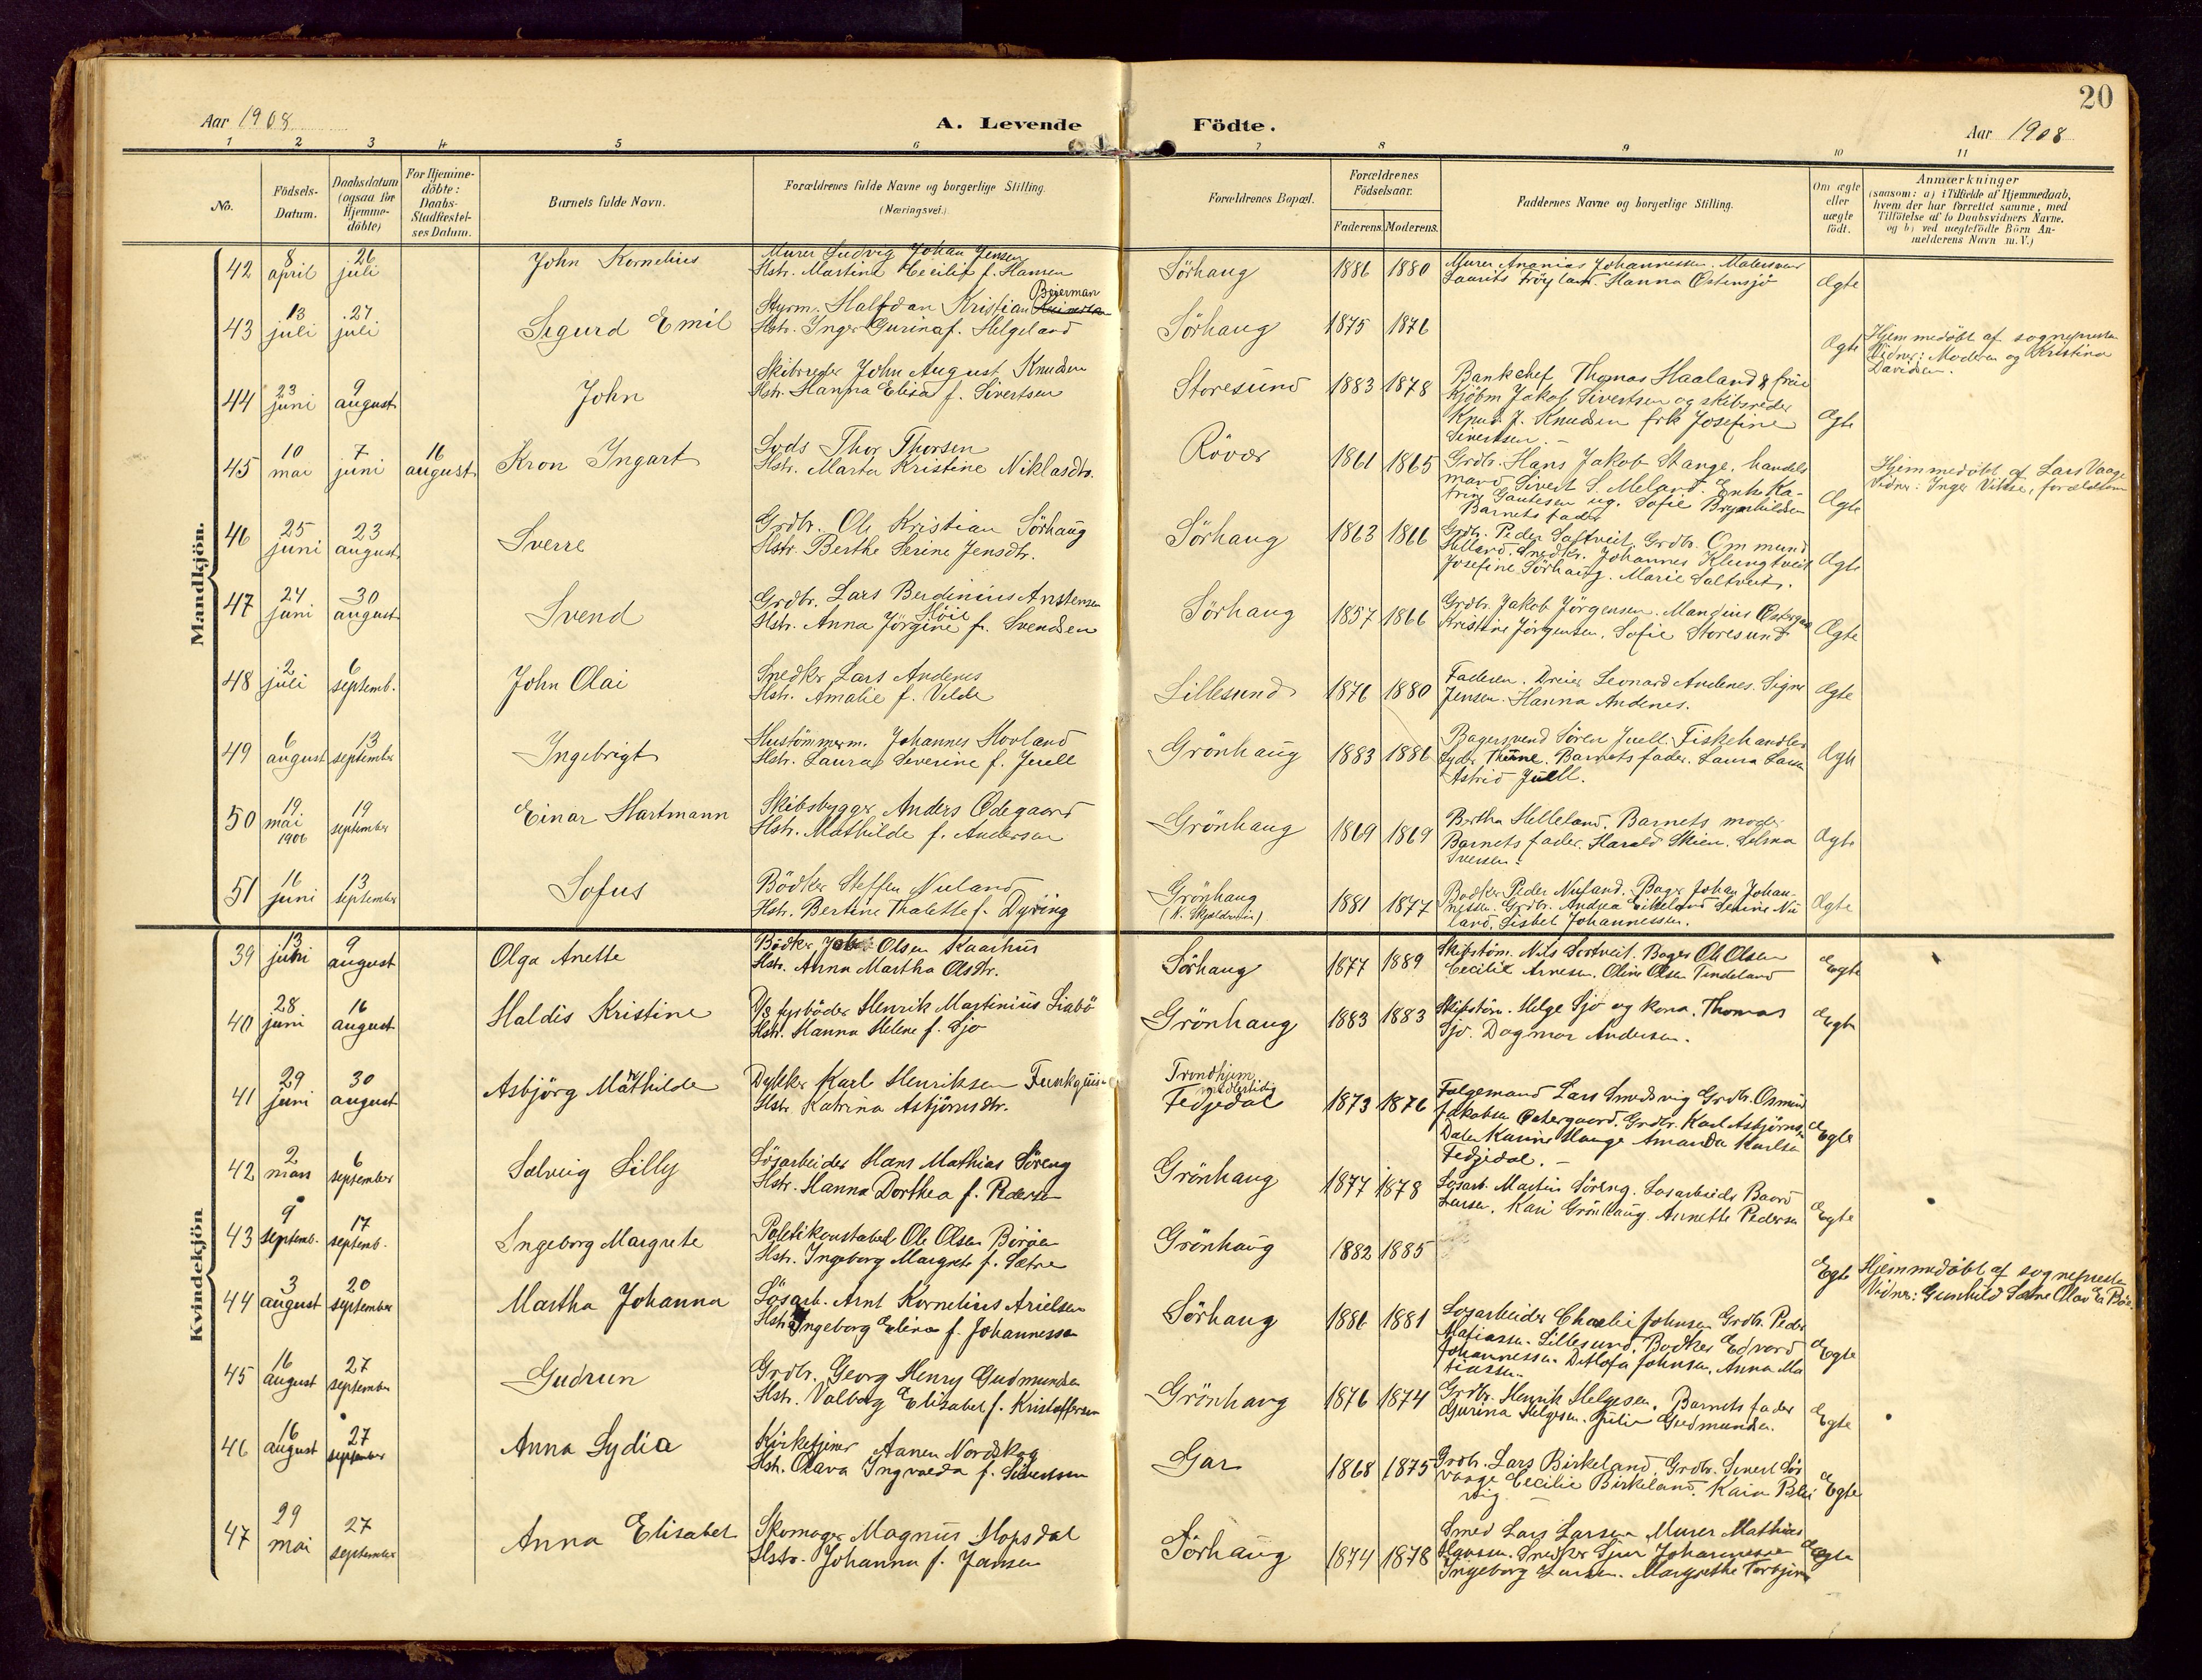 20
Aar 1908
A. Levende Födte.
Aar 1908
1 2 3 4 5 6 7 8 9 10 11
No.
Födsels-Datum.
Daabsdatum (ogsaa for Hjemme-döbte)
For Hjemme-döbte: Daabs-Stadfæstel-ses Datum.
Barnets fulde Navn.
Forældrenes fulde Navne og borgerlige Stilling. (Næringsvei.)
Forældrenes Bopæl.
Forældrenes Födselsaar.
Faderens. Moderens.
Faddernes Navne og borgerlige Stilling.
Om ægte eller uægte födt.
Anmærkninger
(saasom: a) i Tilfælde af Hjemmedaab,
hvem der har forrettet samme, med
Tilföielse af to Daabsvidners Navne,
og b) ved uægtefödte Börn An-
melderens Navn m. V.)
Mandkjön.
42 8 april 26 juli John Kornelius
Murer Ludvig Johan Jensen
Hstr. Martine Cecilie f. Hansen
Sörhaug 1886 1880
Murer Ananias Johannessen. Malersvend
Laurits Fröyland. Hanna Östensjö
Ægte
43 13 juli 27 juli Sigurd Emil
Beierman
Styrm. Halfdan Kristian
Hstr. Inger Gurina f. Helgeland
Sörhaug 1875 1876
Ægte
Hjemmedöbt af sognepresten
Vidner: Moderen og Kristina
Davidsen.
44 23 juni 9 august John
Skibsreder John August Knudsen
Hstr. Hanna Elisa f. Sivertsen
Storesund 1883 1878
Bankchef Thomas Haaland & frue
Kjöbm Jakob Sivertsen og skibsreder
Knud J. Knudsen frk Josefine
Sivertsen.
Ægte
45 10 mai 7 juni 16 august Kron Ingart
Lods Thor Thorsen
Hstr. Marta Kristine Niklasdtr.
Rövær 1861 1865
Grdbr. Hans Jakob Stange, handels
mand Sivert S. Meland. Enke Ka-
trine Gautesen ug. Sofie Brynhildsen
Barnets fader
Ægte
Hjemmedöbt af Lars Vaage
Vidner: Inger Vikse, forældrene
46 25 juni 23 august Sverre
Grdbr. Ole Kristian Sörhaug
Hstr. Berthe Serine Jensdtr.
Sörhaug 1863 1866
Grdbr. Peder Saltveit. Grdbr. Ommund
Snedkr. Johannes Klungtveit
Josefine Sörhaug. Marie Saltveit.
Ægte
47 24 juni 30 august Svend
Grdbr. Lars Berdinius Anstensen
Höie
Hstr. Anna Jörgine f. Svendsen
Sörhaug 1857 1866
Grdbr. Jakob Jörgensen. Mandius Östergaa
Kristine Jörgensen. Sofie Storesund
Ægte
48 2 juli 6 septemb. John Olai
Snedker Lars Andenes
Hstr. Amalie f. Velde
Lillesund 1876 1880
Faderen. Dreier Leonard Andenes. Signe
Jensen. Hanna Andenes.
Ægte
49 6 august 13 september Ingebrigt
Hustömmerm. Johannes Hovland
Hstr. Laura Severine f. Juell
Grönhaug 1883 1886
Bagersvend Sören Juell. Fiskehandler
Thinne. Barnets fader. Laura Larsen
Astrid Juell.
Ægte
50 19 mai 1906 19 september Einar Hartmann
Skibsbygger Anders Ödegaard
Hstr. Mathilde f. Andersen
Grönhaug 1869 1869
Bertha Helleland. Barnets moder
Barnets fader. Harald Skien. Selma
Iversen.
Ægte
51 16 juni 13 september Sofus
Bödker Steffen Nuland
Hstr. Bertine Thalette f. Dyring
Grönhaug 1881 1877
Bödker Peder Nuland. Bager Johan Johan-
nessen. Grdbr. Andrea Eikeland Serine Nu
land. Lisbet Johannessen.
Ægte
Kvindekjön
39 13 juni 9 august Olga Anette
Bödker Olsen Kaarhus
Hstr. Anna Martha Olsdtr.
Sörhaug 1877 1889
Skibstöm. Nils Sortveit. Bager Ole Olsen
Cecilie Arnesen. Oline Olsen Tindeland
Egte
40 28 juni 16 august Haldis Kristine
D/s fyrböder Henrik Martinius Liabö
Hstr. Hanna Helene f. Sjo
Grönhaug 1883 1883
Skibstöm. Helge Sjo og kona. Thomas
Sjo. Dagmar Andersen.
Egte
41 29 juni 30 august Asbjörg Mathilde
Dykker Karl Henriksen Funkquis
Hstr. Katrina Asbjörnsdtr.
Trondhjem
midlertidig
Fedjedal 1873 1876
Følgemand Lars Smedsvig Grdbr. Osmund
Jakobsen Östergaard. Grdbr. Karl Asbjörns
Dale Karine Hauge Amanda Karlsen
Fedjedal.
Egte
42 2 mars 6 september Solveig Lilly
Lösarbeider Hans Mathias Söreng
Hstr. Hanna Dorthea f. Pedersen
Grönhaug 1877 1878
Lösarb. Martin Söreng. Losarbeider Baard
Larsen. Kari Grönhaug. Annette Pedersen
Egte
43 9 septemb. 17 septemb. Ingeborg Margrete
Politikonstabel Ole Olsen Böröen
Hstr. Ingeborg Margrete f. Sætre
Grönhaug 1882 1885
Egte
Hjemmedöbt af sognepresten
Vidner: Gunhild Sætre Olav
44 3 august 20 september Martha Johanna
Lösarb. Arnt Kornelius Arielsen
Hstr. Ingeborg Elina f. Johannessen
Sörhaug 1886 1881
Losarbeider Charlie Johnsen Grdbr. Peder
Matiassen. Lillesund. Bødker Edvard
Johannessen. Detlofa Johnsen. Anna Ma
tiassen.
Egte
45 16 august 27 september Gudrun
Grdbr. Georg Henry Gudmundsen
Hstr. Valborg Elisabet f. Kristoffersen
Grönhaug 1876 1874
Grdbr. Henrik Helgesen. Barnets fader
Gurina Helgesen. Julie Gudmundsen.
Egte
46 16 august 27 september Anna Lydia
Kirketjener Aanen Nordskog
Hstr. Olava Ingvalda f. Sivertsen
Gar 1868 1875
Grdb. Lars Birkeland. Grdbr. Sivert Sör
vaage Cecilie Birkeland. Kaia
vig
Egte
47 29 mai 27 september Anna Elisabet
Skomager Magnus Hopsdal
Hstr. Johanna f. Jansen
Sörhaug 1874 1878
Smed Lars Larsen Murer Mathias
Hanssen. Snedker Sjur Johannessen
Ingeborg Larsen. Margrethe Torbjörns
Egte